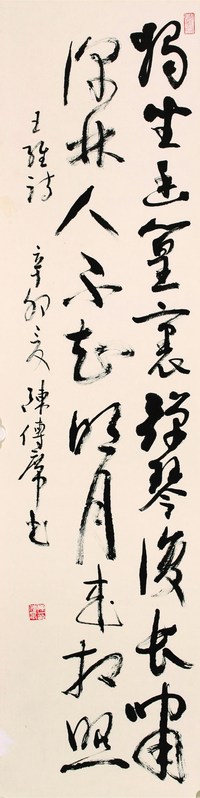 獨坐幽篁裏彈琴復長嘯
深林人不知明月來相照
王維詩 辛卯夏 陳傳席書